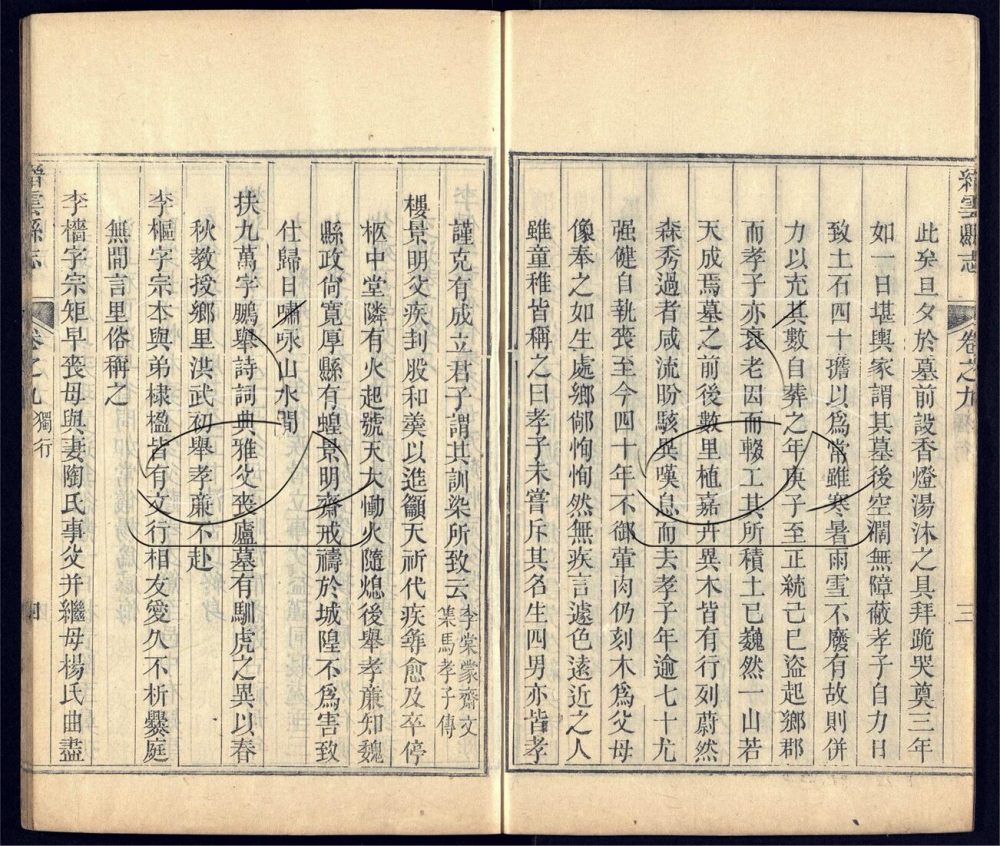 縉雲縣志
卷之九
三
此矣旦夕於墓前設香燈湯沐之具拜跪哭奠三年
如一日堪輿家謂其墓後空濶無障蔽孝子自力日
致土石四十擔以爲常雖寒暑雨雪不廢有故則併
力以充其數自葬之年庚子至正統己巳盜起鄉郡
而孝子亦衰老因而輟工其所積土已巍然一山若
天成焉墓之前後數里植嘉卉異木皆有行列蔚然
森秀過者咸流盼駭異嘆息而去孝子年逾七十尤
强健自執喪至今四十年不御葷肉仍刻木爲父母
像奉之如生處鄉鄰恂恂然無疾言遽色遠近之人
雖童稚皆稱之曰孝子未嘗斥其名生四男亦皆孝
謹克有成立君子謂其訓染所致云李棠蒙齋文
集馬孝子傳
樓景明父疾刲股和羹以進籲天祈代疾尋愈及卒停
柩中堂隣有火起號天大慟火隨熄後舉孝廉知魏
縣政尙寬厚縣有蝗景明齋戒禱於城隍不爲害致
仕歸日嘯咏山水間
扶九萬字鵬舉詩詞典雅父喪廬墓有馴虎之異以春
秋教授鄉里洪武初舉孝廉不赴
李樞字宗本與弟棣楹皆有文行相友愛久不析爨庭
無間言里俗稱之
李檣字宗矩早喪母與妻陶氏事父并繼母楊氏曲盡
縉雲縣志
卷之九
獨行
四